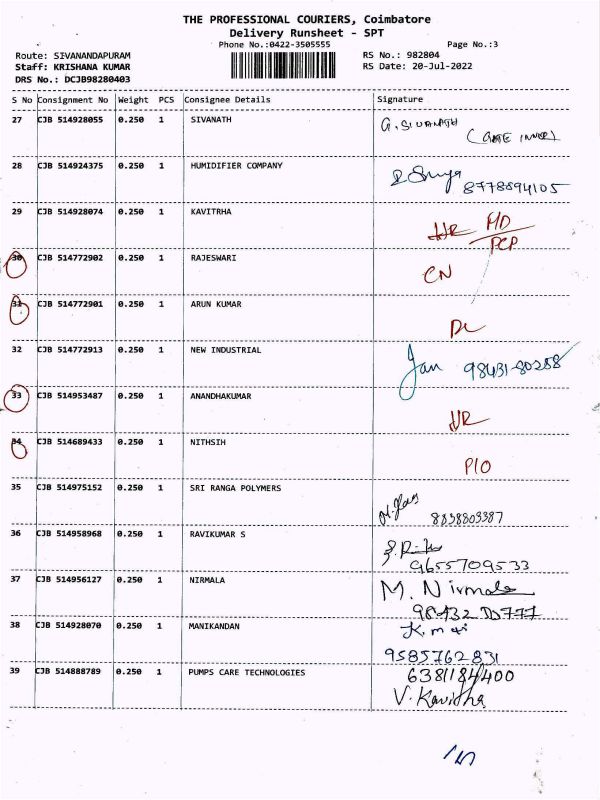 THE PROFESSIONAL COURIERS, Coimbatore
Delivery Runsheet - SPT
Phone No.:0422-3505555 Page No.:3
Route: SIVANANDAPURAM RS No.: 982804
Staff: KRISHANA KUMAR RS Date: 20-Jul-2022
DRS No.: DCJB98280403
S No Consignment No Weight PCS Consignee Details Signature
27 CJB 514928055 0.250 1 SIVANATH G. SIVANATH
28 CJB 514924375 0.250 1 HUMIDIFIER COMPANY 8778894105
29 CJB 514928074 0.250 1 KAVITRHA MD
PCP
30 CJB 514772902 0.250 1 RAJESWARI CN
31 CJB 514772901 0.250 1 ARUN KUMAR DL
32 CJB 514772913 0.250 1 NEW INDUSTRIAL 98431-80288
33 CJB 514953487 0.250 1 ANANDHAKUMAR
34 CJB 514689433 0.250 1 NITHSIH PIO
35 CJB 514975152 0.250 1 SRI RANGA POLYMERS
8838803387
36 CJB 514958968 0.250 1 RAVIKUMAR S
9655709533
37 CJB 514956127 0.250 1 NIRMALA M. Nirmala
38 CJB 514928070 0.250 1 MANIKANDAN
9585762831
39 CJB 514888789 0.250 1 PUMPS CARE TECHNOLOGIES 6381184400
V. Kavidha